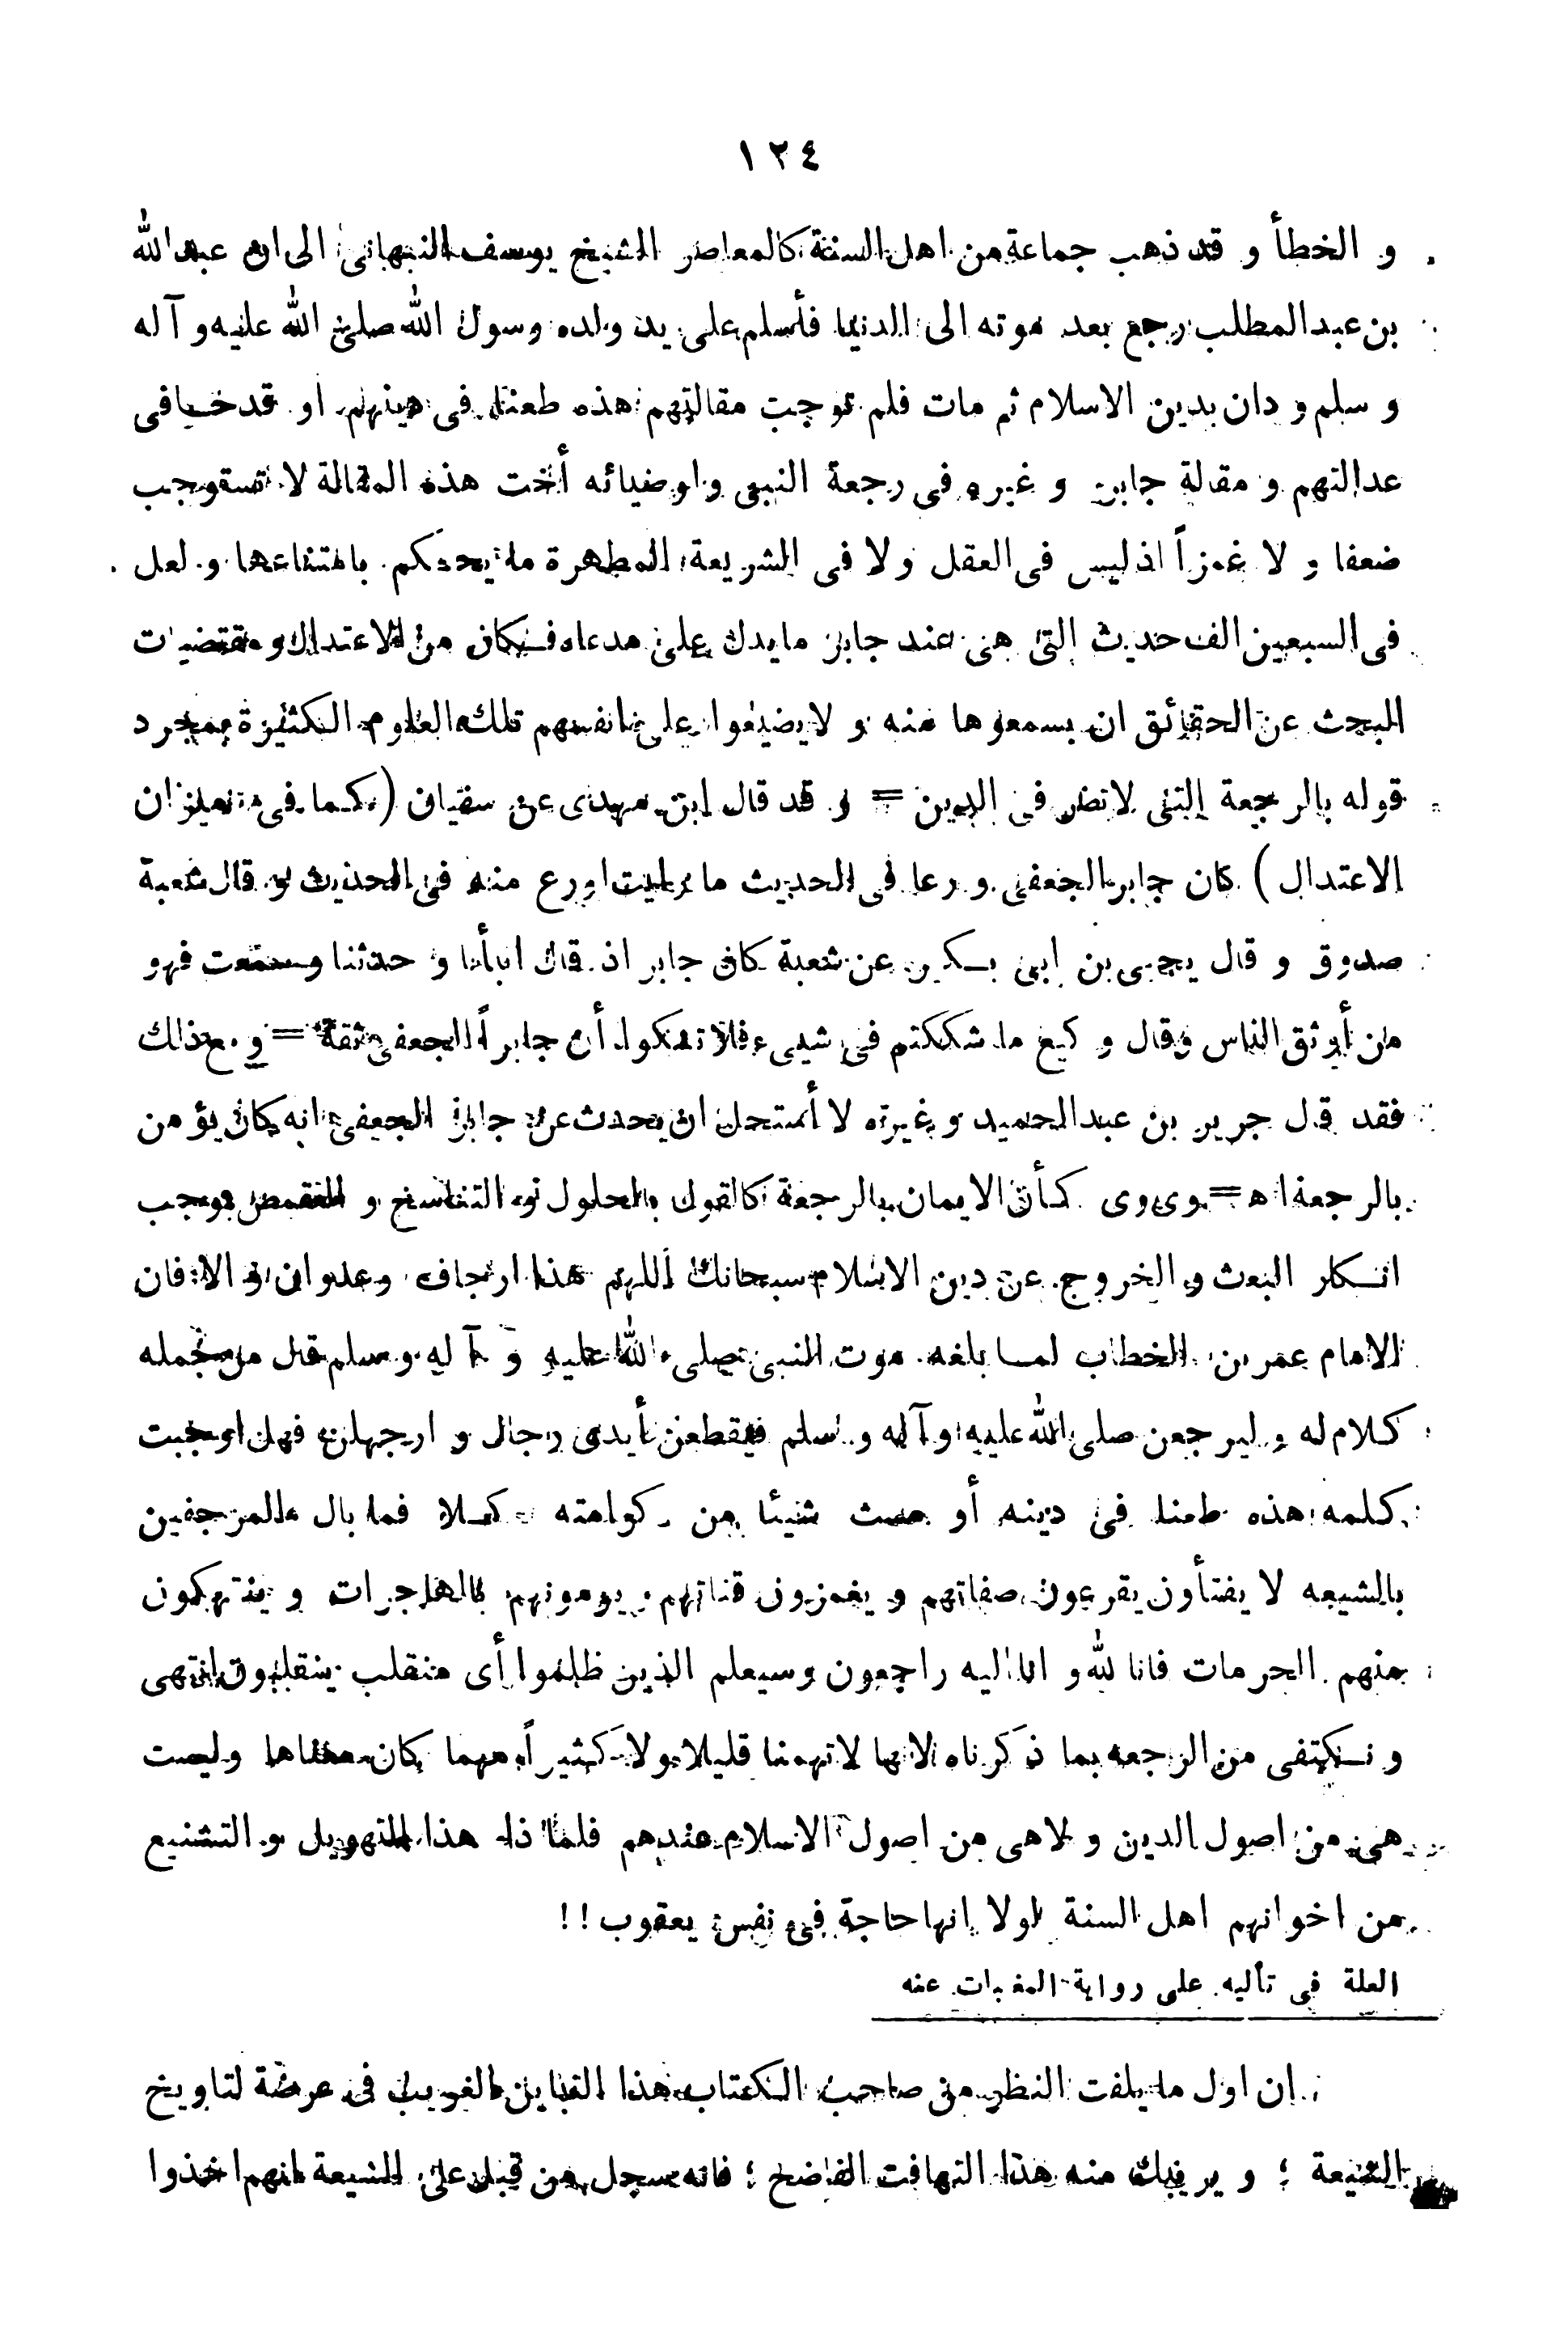 ١٢٤
و الخطأ و قد ذهب جماعة من اهل السنة كالمعاصر الشيخ يوسف النبهانى الى ان عبدالله
بن عبدالمطلب رجع بعد موته الى الدنيا فأسلم على يد ولده رسول الله صلى الله عليه و آله
و سلم و دان بدين الاسلام ثم مات فلم توجب مقالتهم هذه طعنا فى دينهم او قدحا فى
عدالتهم و مقالة جابر و غيره فى رجعة النبى و اوصيائه أخت هذه المقالة لا تستوجب
ضعفا و لا غمزاً اذ ليس فى العقل ولا فى الشريعة المطهرة ما يحكم بامتناعها و لعل
فى السبعين الف حديث التى هى عند جابر ما يدل على مدعاه فكان من الاعتدال و مقتضيات
البحث عن الحقائق ان يسمعوها منه و لا يضيعوا على انفسهم تلك العلوم الكثيرة بمجرد
قوله بالرجعة التى لا تضر فى الدين = و قد قال ابن مهدى عن سفيان ( كما فى ميزان
الاعتدال ) كان جابر الجعفى ورعا فى الحديث ما رايت اورع منه فى الحديث و قال شعبة
صدوق و قال يحيى بن ابى بكير عن شعبة كان جابر اذ قال انبأنا و حدثنا وسمعت فهو
من أوثق الناس وقال وكيع ما شككتم فى شيىء فلا تشكوا أن جابراً الجعفى ثقة = و مع ذلك
فقد قال جرير بن عبدالحميد و غيره لا أستحل ان يحدث عن جابر الجعفى انه كان يؤمن
بالرجعة اه = وى وى كأن الايمان بالرجعة كالقول بالحلول و التناسخ و التقمص يوجب
انكار البعث و الخروج عن دين الاسلام سبحانك اللهم هذا ارجاف و عدوان و الا فان
الامام عمر بن الخطاب لما بلغه موت النبى صلى الله عليه و آله و سلم قال من جمله
كلام له و ليرجعن صلى الله عليه و آله و سلم فيقطعن أيدى رجال و ارجهلن فهل اوجبت
كلمه هذه طعنا فى دينه أو مست شيئا من كرامته كلا فما بال المرجفين
بالشيعه لا يفتأون يقرعون صفاتهم و يغمزون قناتهم يرمونهم بالهاجرات و ينتهكون
منهم الحرمات فانا لله و انا اليه راجعون وسيعلم الذين ظلموا أى منقلب ينقلبون انتهى
و نكتفى من الرجعه بما ذكرناه لانها لا تهمنا قليلا ولا كثيراً مهما كان معناها وليست
هى من اصول الدين و لا هى من اصول الاسلام عندهم فلما ذا هذا التهويل و التشنيع
من اخوانهم اهل السنة لولا انها حاجة فى نفس يعقوب !!
العلة فى تأليه على رواية المغيبات عنه
ان اول ما يلفت النظر من صاحب الكتاب هذا التباين الغريب فى عرضة لتاريخ
الشيعة ؛ و يريك منه هذا التهافت الفاضح ؛ فانه سجل من قبل على الشيعة انهم اخذوا